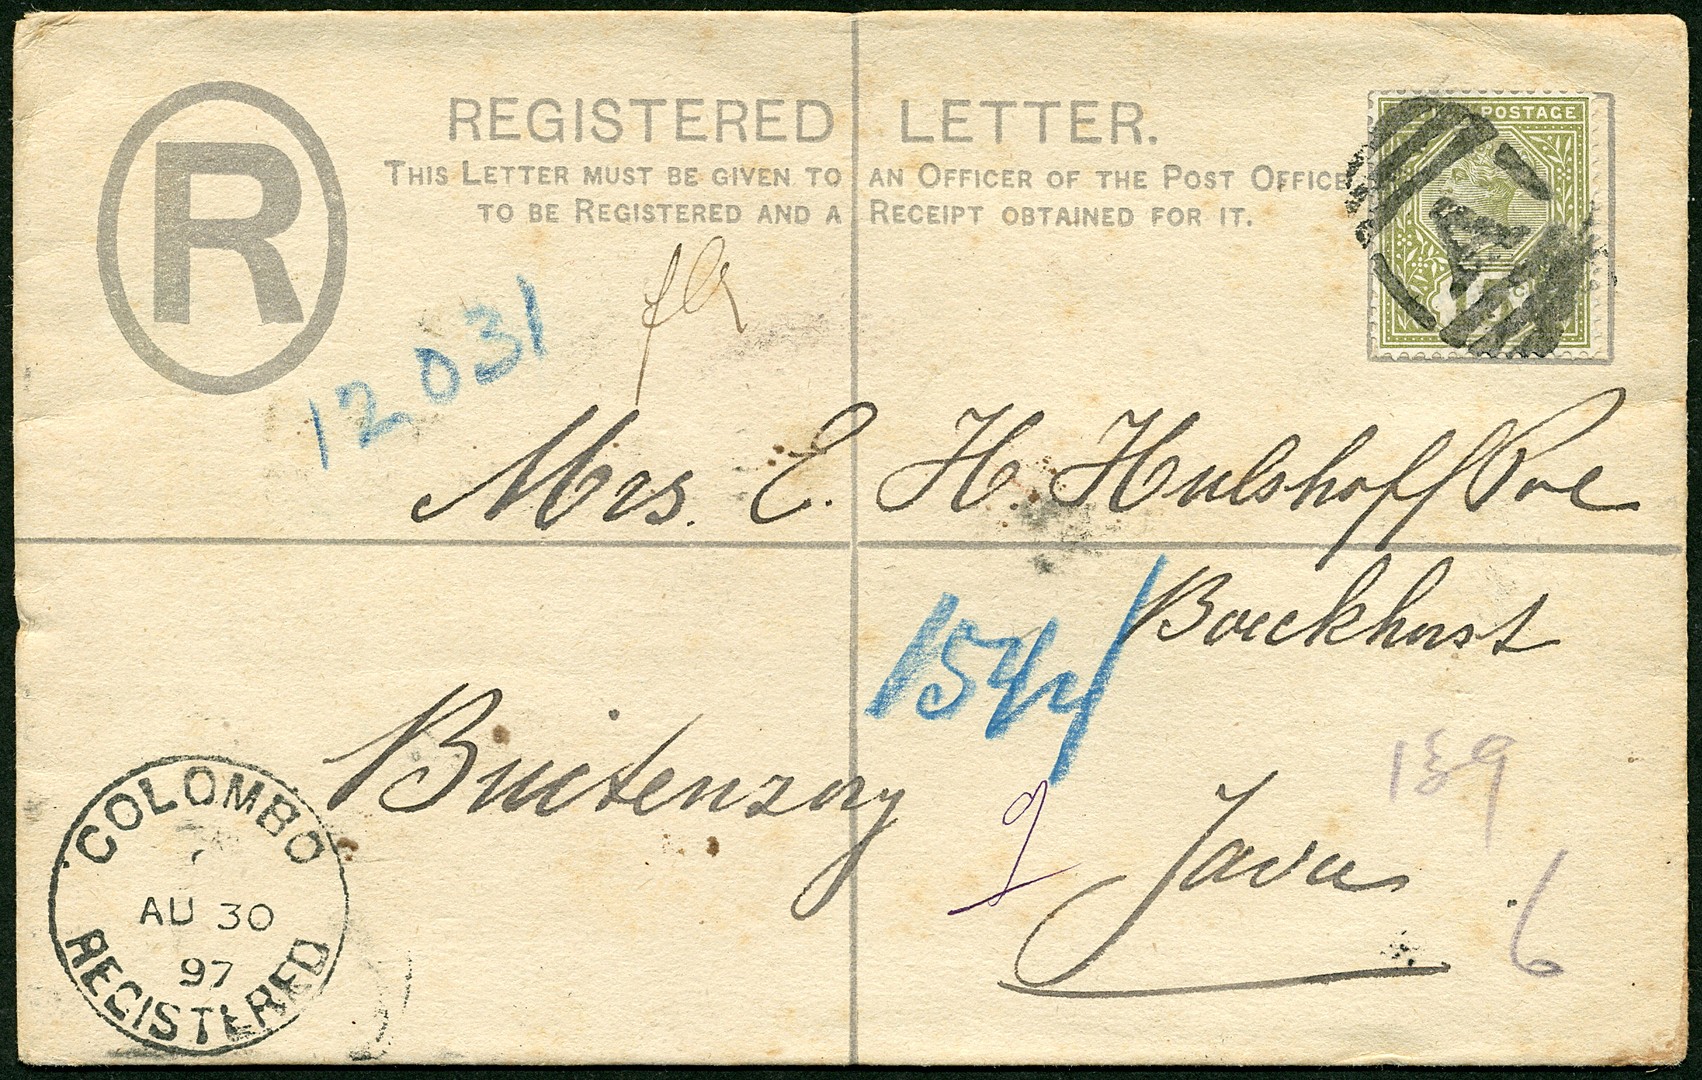 R
REGISTERED LETTER.
THIS LETTER MUST BE GIVEN TO AN OFFICER OF THE POST OFFICE
TO BE REGISTERED AND A RECEIPT OBTAINED FOR IT.
POSTAGE
12031
Mrs. E. H. Hulshoff Pol
Boeckhorst
1544
Buitenzorg
Java
6
COLOMBO
AU 30
97
REGISTERED